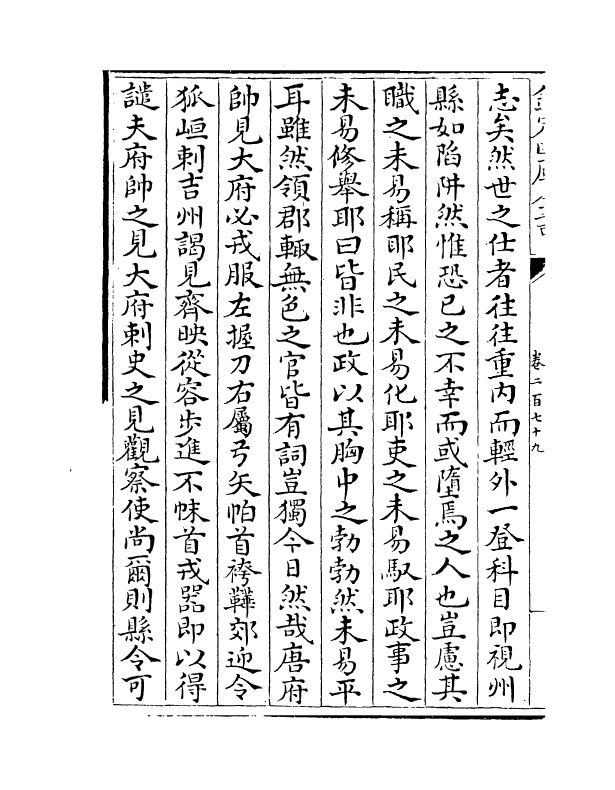 志矣然世之仕者往往重内而輕外一登科目即視州
縣如陷阱然惟恐已之不幸而或墮焉之人也豈慮其
職之未易稱耶民之未易化耶吏之未易馭耶政事之
未易修舉耶曰皆非也政以其胸中之勃勃然未易平
耳雖然領郡輙無色之官皆有詞豈獨今日然哉唐府
帥見大府必戎服左握刀右屬弓矢帕首袴鞾郊迎令
狐峘刺吉州謁見齊映從容步進不帓首戎器即以得
譴夫府帥之見大府刺史之見觀察使尚爾則縣令可
卷二百七十九